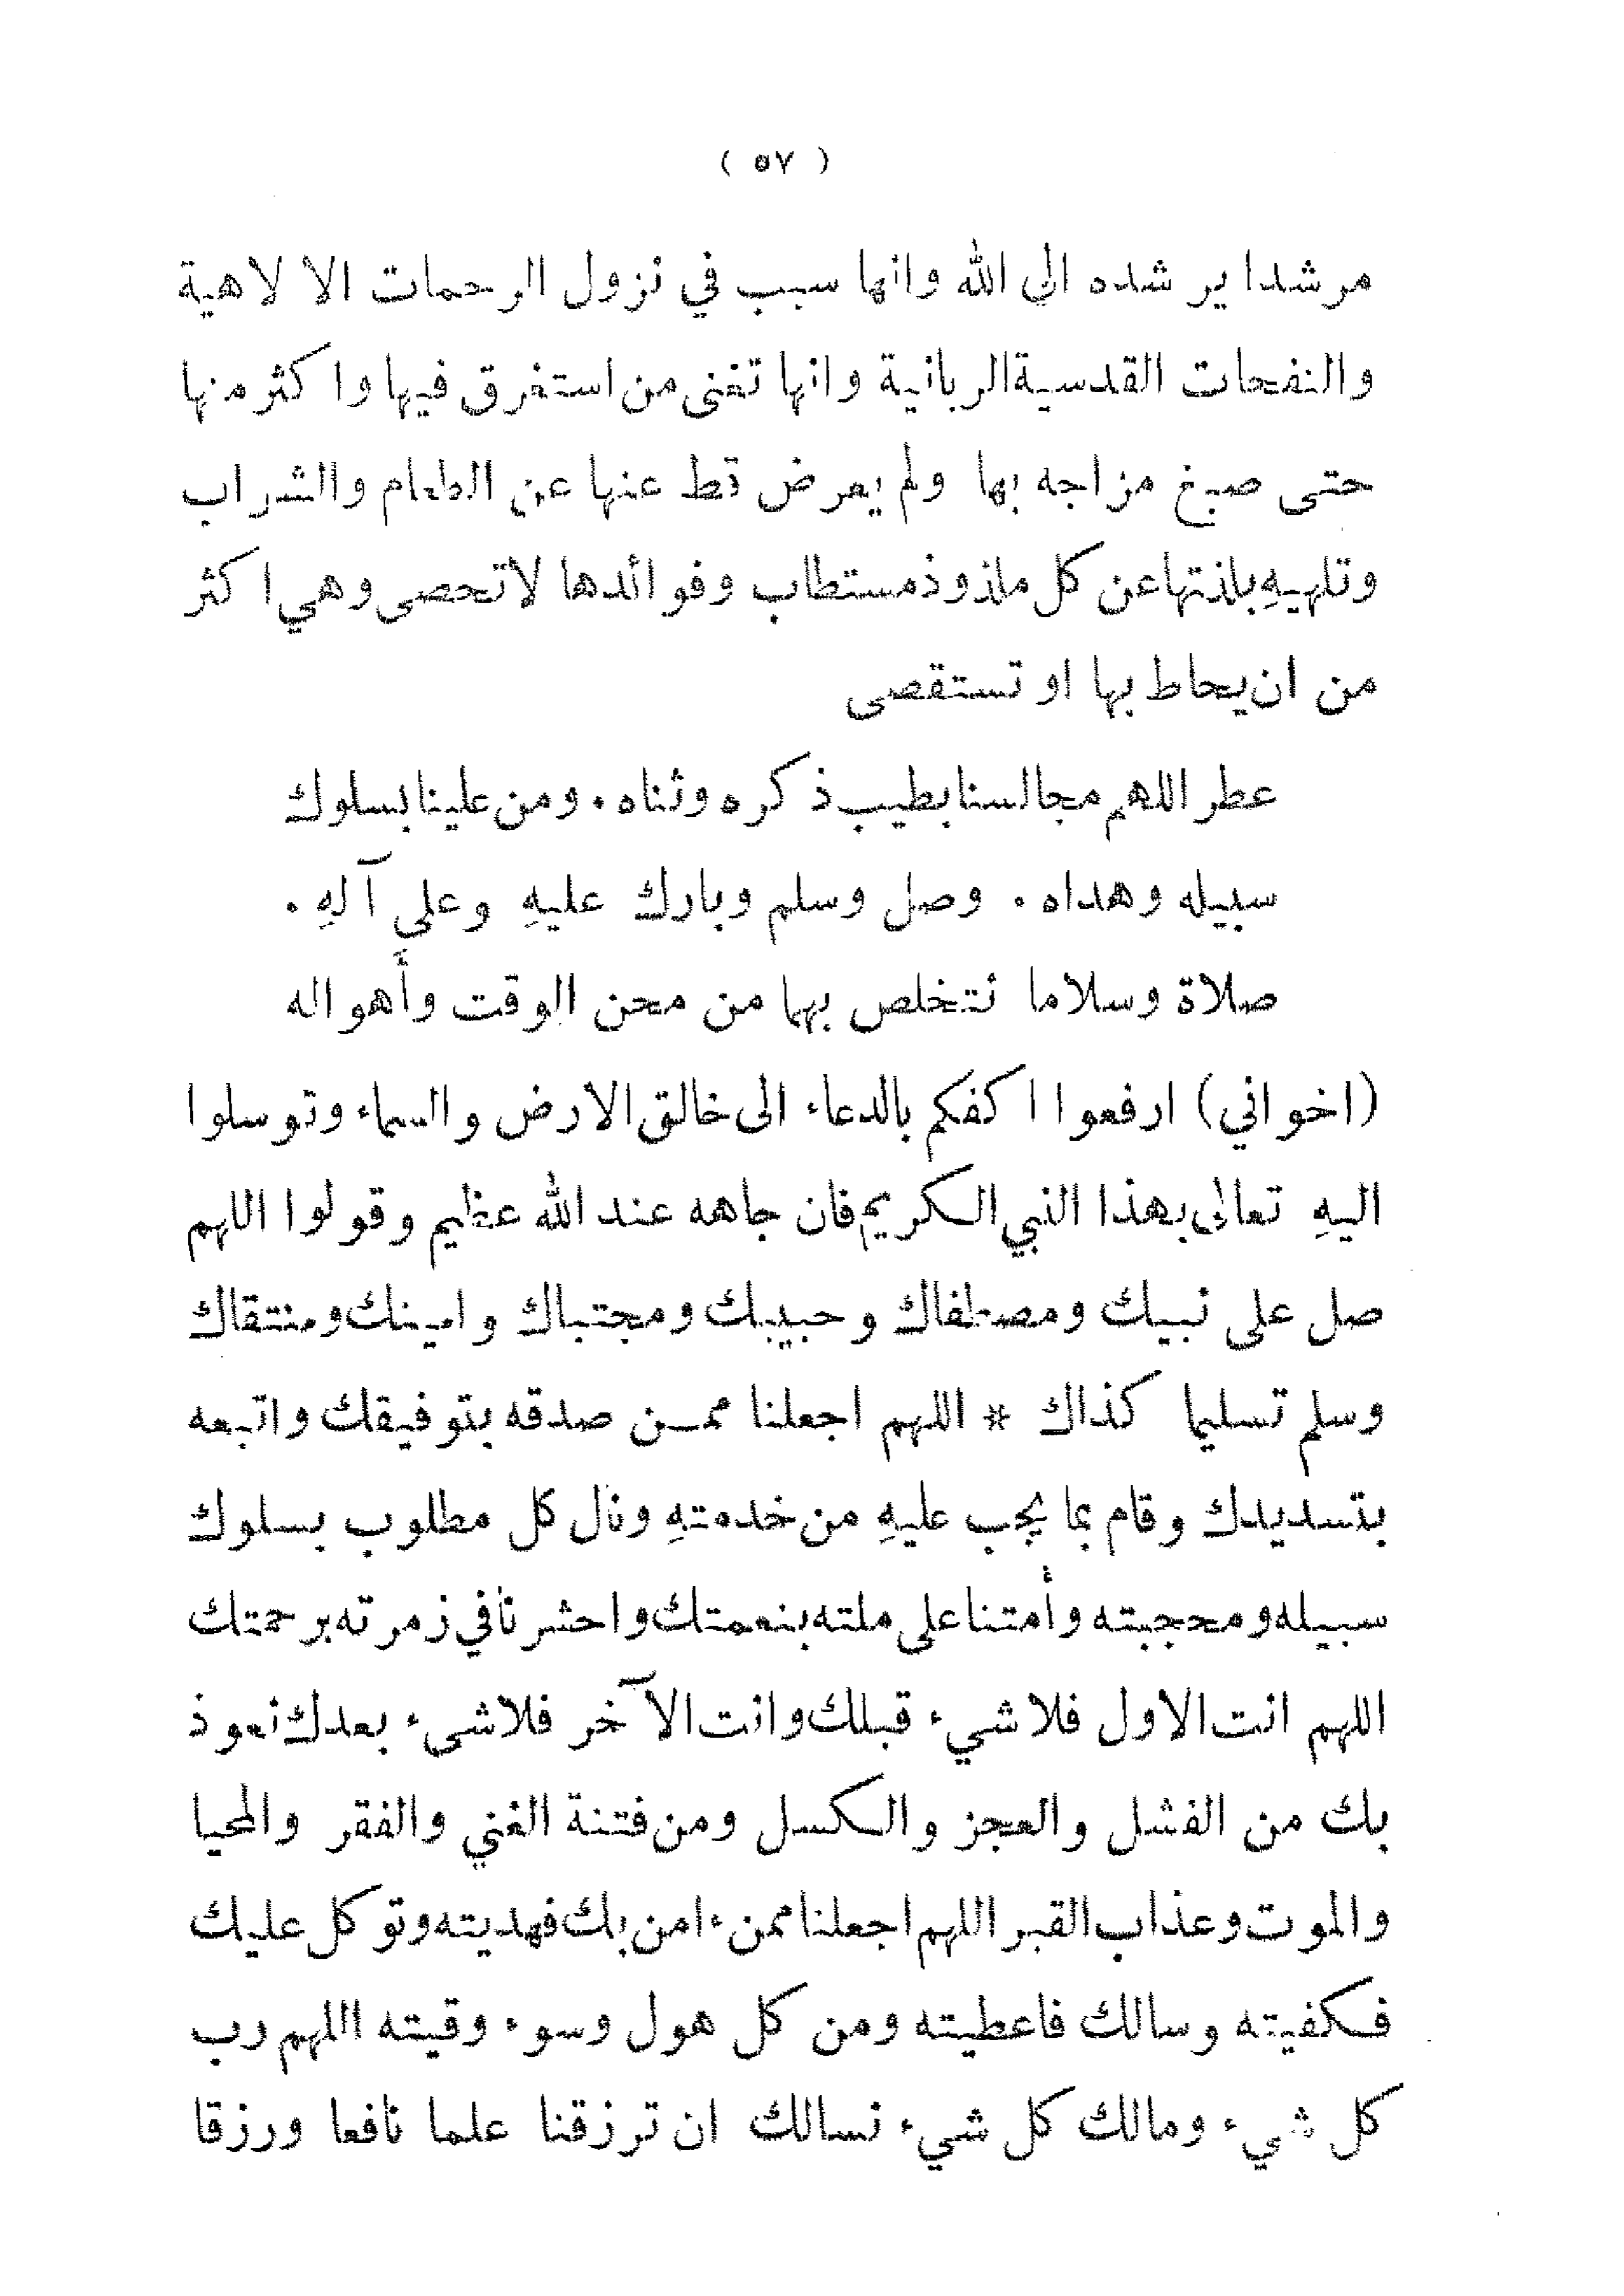 ( ٥٧ )
مرشدا يرشده الى الله وانها سبب في نزول الرحمات الالاهية
والنفحات القدسية الربانية وانها تغنى من استغرق فيها واكثر منها
حتى صبغ مزاجه بها ولم يعرض قط عنها عن الطعام والشراب
وتلهيهِ بلذتها عن كل ملذوذ مستطاب وفوائدها لا تحصى وهي اكثر
من ان يحاط بها او تستقصى
عطر اللهم مجالسنا بطيب ذكره وثناه . ومن علينا بسلوك
سبيله وهداه . وصل وسلم وبارك عليهِ وعلى آلهِ .
صلاة وسلاما نتخلص بهما من محن الوقت وأَهواله
(اخواني) ارفعوا اكفكم بالدعاء الى خالق الارض والسماء وتوسلوا
اليهِ تعالى بهذا النبي الكريم فان جاهه عند الله عظيم وقولوا اللهم
صل على نبيك ومصطفاك وحبيبك ومجتباك وامينك ومنتقاك
وسلم تسليما كذاك * اللهم اجعلنا ممن صدقه بتوفيقك واتبعه
بتسديدك وقام بما يجب عليهِ من خدمتهِ ونال كل مطلوب بسلوك
سبيله ومحجبته وأمتنا على ملته بنعمتك واحشرنا في زمرته برحمتك
اللهم انت الاول فلا شيء قبلك وانت الآخر فلا شيء بعدك نعوذ
بك من الفشل والعجز والكسل ومن فتنة الغني والفقر والمحيا
والموت وعذاب القبر اللهم اجعلنا ممن ءامن بك فهديته وتوكل عليك
فكفيته وسالك فاعطيته ومن كل هول وسوء وقيته االهم رب
كل شيء ومالك كل شيء نسالك ان ترزقنا علما نافعا ورزقا